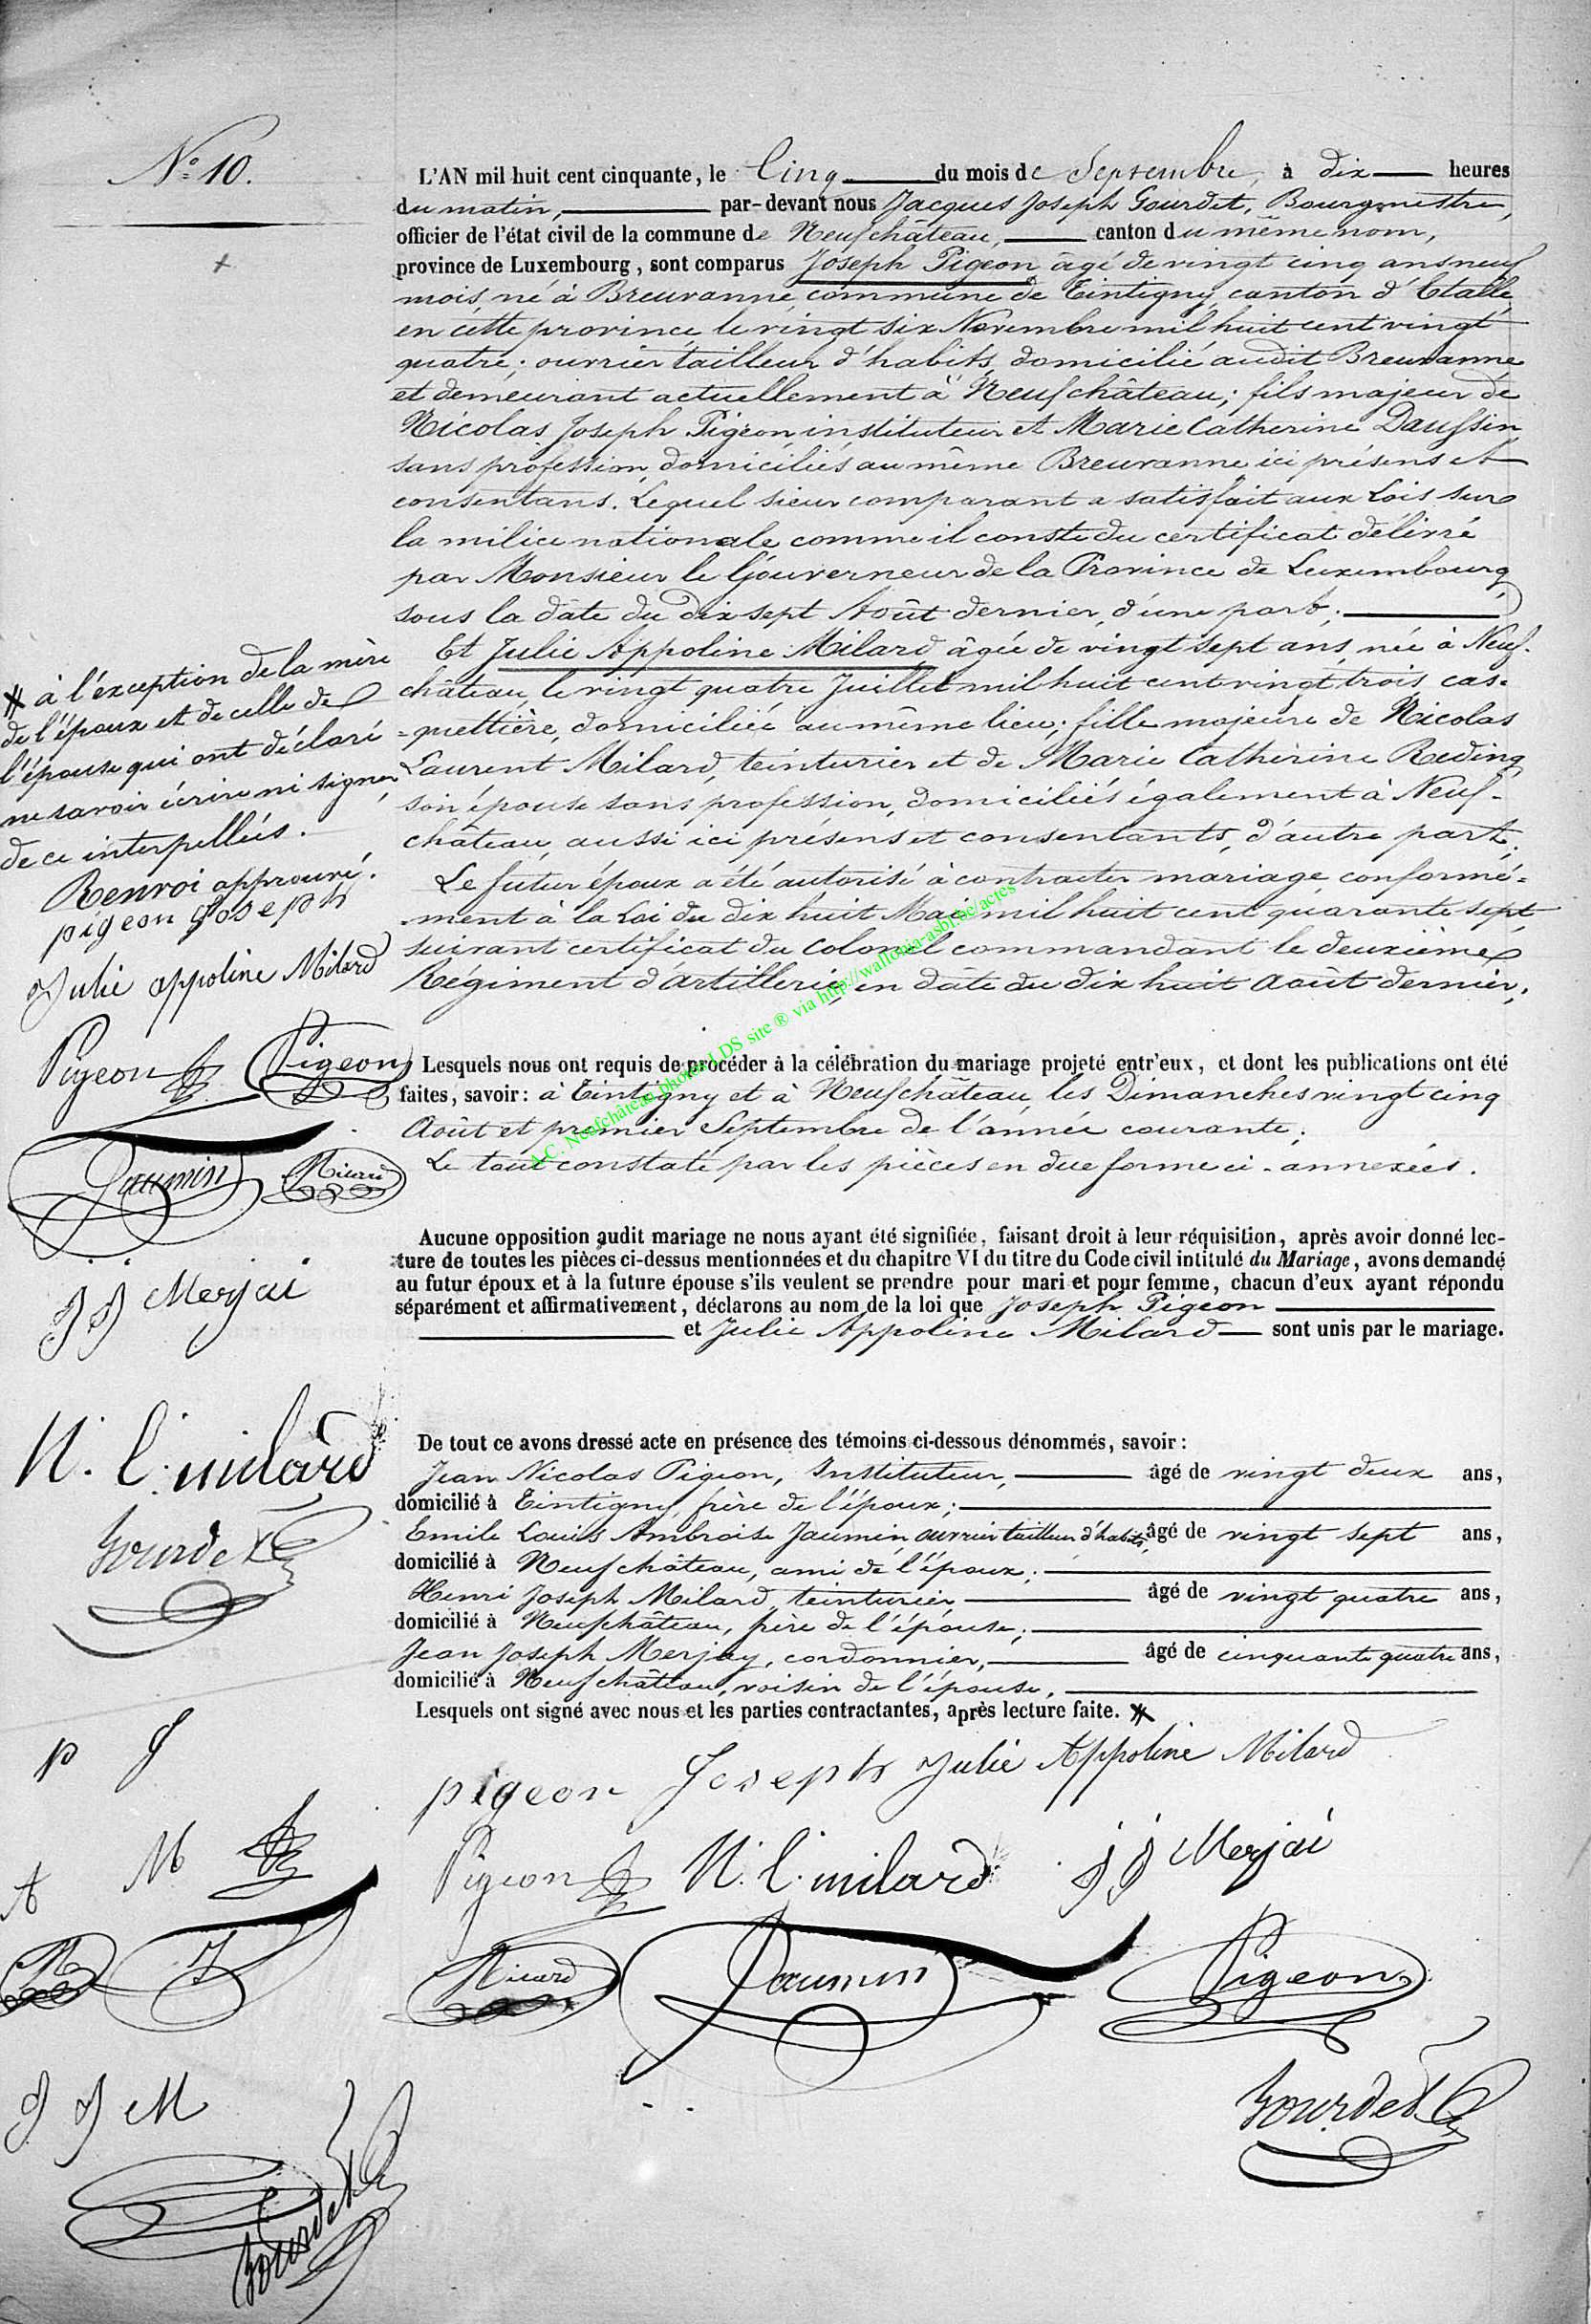 N° 10.
L'AN mil huit cent cinquante, le Cinq du mois de Septembre, à dix heures
du matin, par-devant nous Jacques Joseph Gourdet, Bourgmestre,
officier de l'état civil de la commune de Neufchâteau, canton du même nom,
province de Luxembourg, sont comparus Joseph Pigeon âgé de vingt cinq ans neuf
mois, né à Breuvanne, commune de Tintigny, canton d'Etalle,
en cette province, le vingt six Novembre mil huit cent vingt
quatre; ouvrier tailleur d'habits, domicilié audit Breuvanne
et demeurant actuellement à Neufchâteau; fils majeur de
Nicolas Joseph Pigeon, instituteur et Marie Catherine Daussin
sans profession, domiciliés au même Breuvanne ici présens et
consentans. Lequel sieur comparant a satisfait aux Lois sur
la milice nationale comme il conste du certificat délivré
par Monsieur le Gouverneur de la Province de Luxembourg
sous la date du dix sept Août dernier, d'une part;
Et Julie Appoline Milard âgée de vingt sept ans, née à Neuf-
château, le vingt quatre Juillet mil huit cent vingt trois, cas-
=quettière, domiciliée au même lieu; fille majeure de Nicolas
Laurent Milard, teinturier et de Marie Catherine Reding,
son épouse sans profession, domiciliés également à Neuf-
château, aussi ici présens et consentants, d'autre part.
Le futur époux a été autorisé à contracter mariage, conformé=
-ment à la Loi du dix huit Mai mil huit cent quarante sept,
suivant certificat du Colonel commandant le deuxième
Régiment d'Artillerie, en date du dix huit Août dernier,
※ à l'exception de la mère
de l'époux et de celle de
l'épouse qui ont déclaré
ne savoir écrire ni signer
de ce interpellées.
Renvoi approuvé.
pigeon Joseph
Julie appoline Milard
Pigeon Pigeon
Jaumin Milard
J J Merjai
N. l. milard
Gourdet
Lesquels nous ont requis de procéder à la célébration du mariage projeté entr'eux, et dont les publications ont été
faites, savoir: à Tintigny et à Neufchâteau, les Dimanches vingt cinq
Août et premier Septembre de l'année courante;
Le tout constaté par les pièces en due forme ci-annexées.
A.C. Neufchâteau photos LDS site ® via http://wallonia-asbl.be/actes
Aucune opposition audit mariage ne nous ayant été signifiée, faisant droit à leur réquisition, après avoir donné lec-
ture de toutes les pièces ci-dessus mentionnées et du chapitre VI du titre du Code civil intitulé du Mariage, avons demandé
au futur époux et à la future épouse s'ils veulent se prendre pour mari et pour femme, chacun d'eux ayant répondu
séparément et affirmativement, déclarons au nom de la loi que Joseph Pigeon
et Julie Appoline Milard sont unis par le mariage.
De tout ce avons dressé acte en présence des témoins ci-dessous dénommés, savoir:
Jean Nicolas Pigeon, Instituteur, âgé de vingt deux ans,
domicilié à Tintigny, frère de l'époux;
Emile Louis Ambroise Jaumin, ouvrier tailleur d'habits, âgé de vingt sept ans,
domicilié à Neufchâteau, ami de l'époux;
Henri Joseph Milard, teinturier âgé de vingt quatre ans,
domicilié à Neufchâteau, frère de l'épouse;
Jean Joseph Merjay, cordonnier, âgé de cinquante quatre ans,
domicilié à Neufchâteau, voisin de l'épouse,
Lesquels ont signé avec nous et les parties contractantes, après lecture faite. ※
pigeon Joseph Julie Appoline Milard
Pigeon N. l. milard J J Merjai
Milard Jaumin Pigeon
Gourdet
P J
A M
M J
J J M
Gourdet